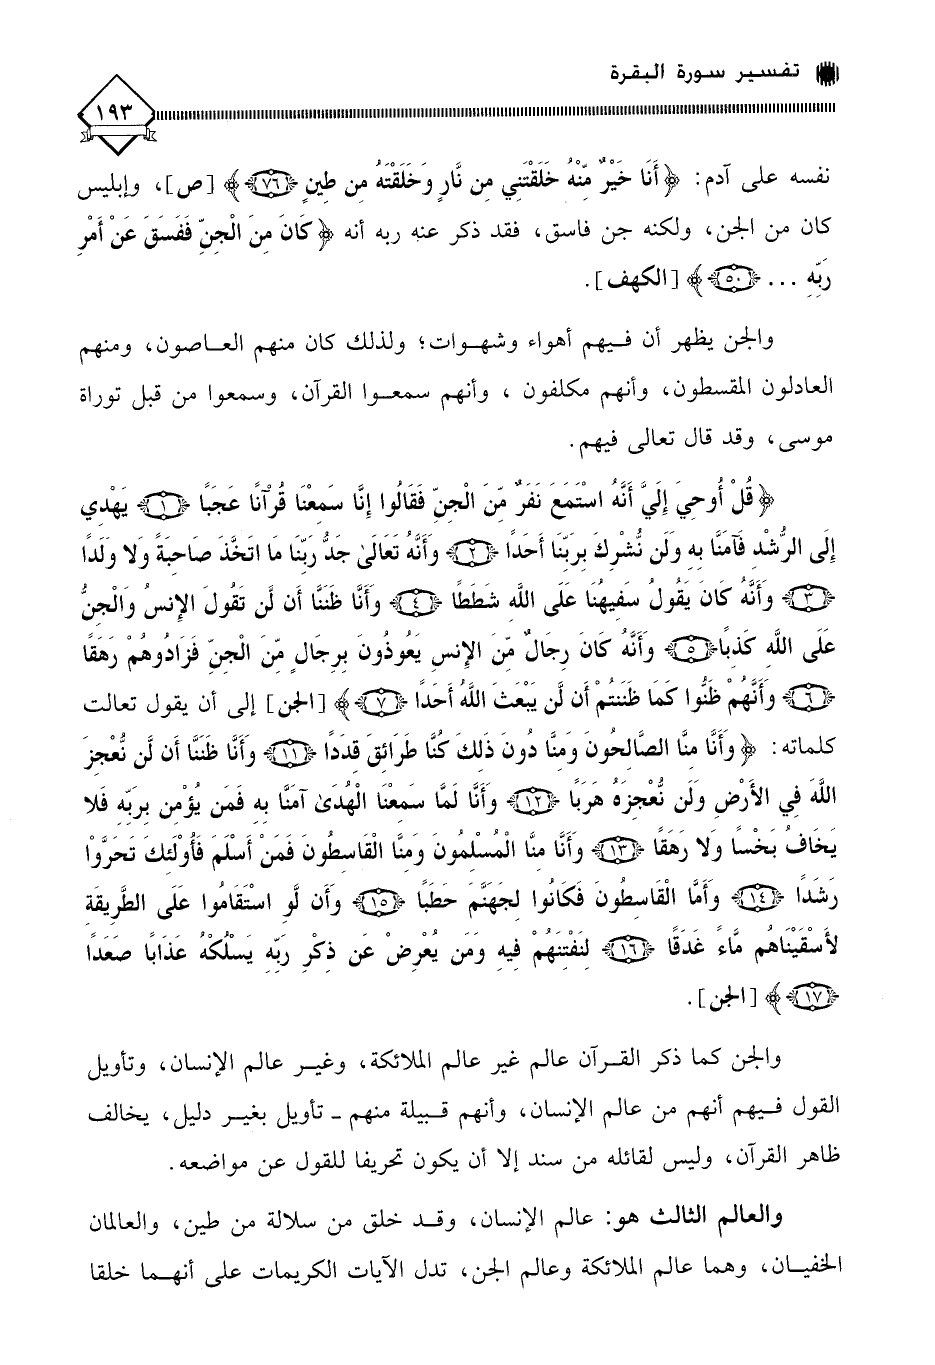 تفسير سورة البقرة
١٩٣
نفسه على آدم: ﴿أَنَا خَيْرٌ مِّنْهُ خَلَقْتَنِي مِن نَّارٍ وَخَلَقْتَهُ مِن طِينٍ ﴿٧٦﴾﴾ [ص]، وإبليس
كان من الجن، ولكنه جن فاسق، فقد ذكر عنه ربه أنه ﴿كَانَ مِنَ الْجِنِّ فَفَسَقَ عَنْ أَمْرِ
رَبِّهِ ... ﴿٥٠﴾﴾ [الكهف].
والجن يظهر أن فيهم أهواء وشهوات؛ ولذلك كان منهم العاصون، ومنهم
العادلون المقسطون، وأنهم مكلفون ، وأنهم سمعوا القرآن، وسمعوا من قبل توراة
موسى، وقد قال تعالى فيهم.
﴿قُلْ أُوحِيَ إِلَيَّ أَنَّهُ اسْتَمَعَ نَفَرٌ مِّنَ الْجِنِّ فَقَالُوا إِنَّا سَمِعْنَا قُرْآنًا عَجَبًا ﴿١﴾ يَهْدِي
إِلَى الرُّشْدِ فَآمَنَّا بِهِ وَلَن نُّشْرِكَ بِرَبِّنَا أَحَدًا ﴿٢﴾ وَأَنَّهُ تَعَالَىٰ جَدُّ رَبِّنَا مَا اتَّخَذَ صَاحِبَةً وَلا وَلَدًا
﴿٣﴾ وَأَنَّهُ كَانَ يَقُولُ سَفِيهُنَا عَلَى اللَّهِ شَطَطًا ﴿٤﴾ وَأَنَّا ظَنَنَّا أَن لَّن تَقُولَ الإِنسُ وَالْجِنُّ
عَلَى اللَّهِ كَذِبًا ﴿٥﴾ وَأَنَّهُ كَانَ رِجَالٌ مِّنَ الإِنسِ يَعُوذُونَ بِرِجَالٍ مِّنَ الْجِنِّ فَزَادُوهُمْ رَهَقًا
﴿٦﴾ وَأَنَّهُمْ ظَنُّوا كَمَا ظَنَنتُمْ أَن لَّن يَبْعَثَ اللَّهُ أَحَدًا ﴿٧﴾﴾ [الجن] إلى أن يقول تعالت
كلماته: ﴿وَأَنَّا مِنَّا الصَّالِحُونَ وَمِنَّا دُونَ ذَلِكَ كُنَّا طَرَائِقَ قِدَدًا ﴿١١﴾ وَأَنَّا ظَنَنَّا أَن لَّن نُّعْجِزَ
اللَّهَ فِي الأَرْضِ وَلَن نُّعْجِزَهُ هَرَبًا ﴿١٢﴾ وَأَنَّا لَمَّا سَمِعْنَا الْهُدَىٰ آمَنَّا بِهِ فَمَن يُؤْمِن بِرَبِّهِ فَلا
يَخَافُ بَخْسًا وَلا رَهَقًا ﴿١٣﴾ وَأَنَّا مِنَّا الْمُسْلِمُونَ وَمِنَّا الْقَاسِطُونَ فَمَنْ أَسْلَمَ فَأُوْلَئِكَ تَحَرَّوْا
رَشَدًا ﴿١٤﴾ وَأَمَّا الْقَاسِطُونَ فَكَانُوا لِجَهَنَّمَ حَطَبًا ﴿١٥﴾ وَأَن لَّوِ اسْتَقَامُوا عَلَى الطَّرِيقَةِ
لأَسْقَيْنَاهُم مَّاءً غَدَقًا ﴿١٦﴾ لِنَفْتِنَهُمْ فِيهِ وَمَن يُعْرِضْ عَن ذِكْرِ رَبِّهِ يَسْلُكْهُ عَذَابًا صَعَدًا
﴿١٧﴾﴾ [الجن].
والجن كما ذكر القرآن عالم غير عالم الملائكة، وغير عالم الإنسان، وتأويل
القول فيهم أنهم من عالم الإنسان، وأنهم قبيلة منهم ـ تأويل بغير دليل، يخالف
ظاهر القرآن، وليس لقائله من سند إلا أن يكون تحريفا للقول عن مواضعه.
والعالم الثالث هو: عالم الإنسان، وقد خلق من سلالة من طين، والعالمان
الخفيان، وهما عالم الملائكة وعالم الجن، تدل الآيات الكريمات على أنهما خلقا